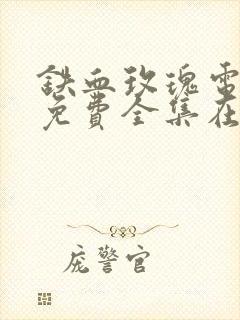 鉄血玫瑰電
免費全集在
庞警官